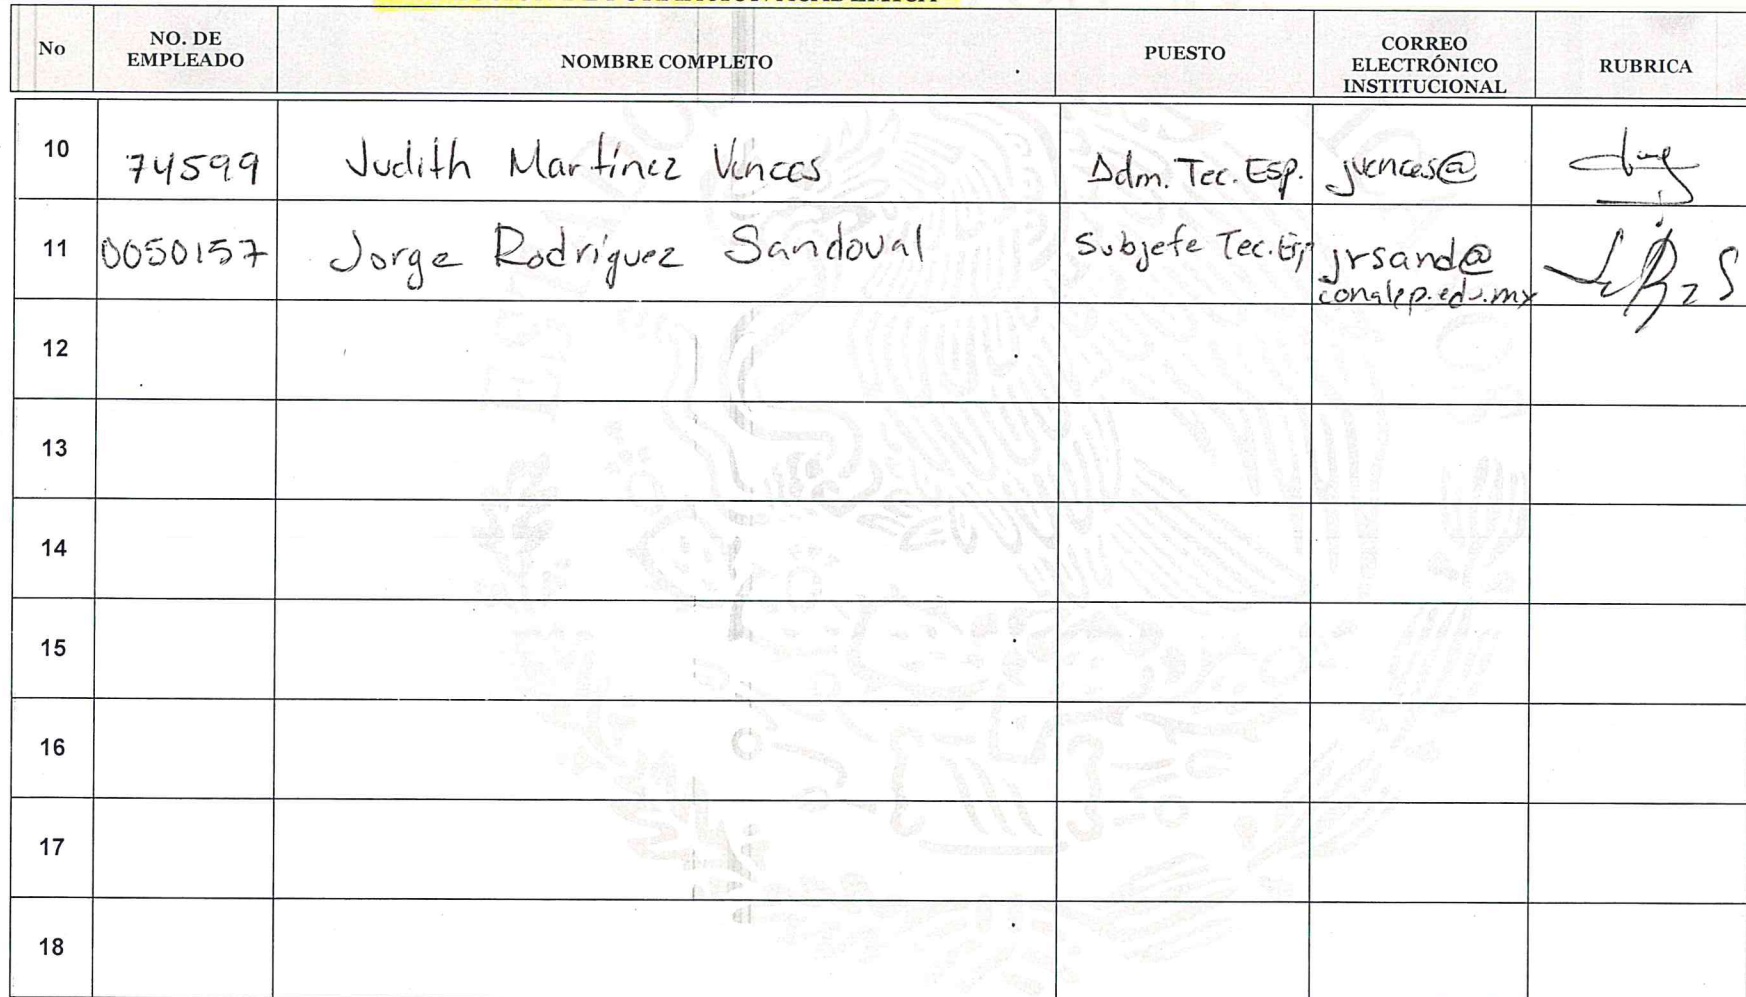 FORMACIÓN ACADÉMICA
No NO. DE EMPLEADO NOMBRE COMPLETO PUESTO CORREO ELECTRÓNICO INSTITUCIONAL RUBRICA
10 74599 Judith Martínez Vences Adm. Tec. Esp. jvences@
11 0050157 Jorge Rodríguez Sandoval Subjefe Tec. Esp jrsand@
conalep.edu.mx
12
13
14
15
16
17
18